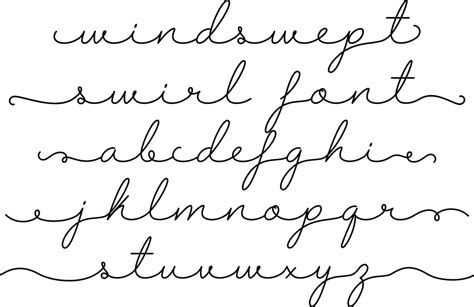 windswept
swirl font
abcdefghi
jklmnopqr
stuvwxyz